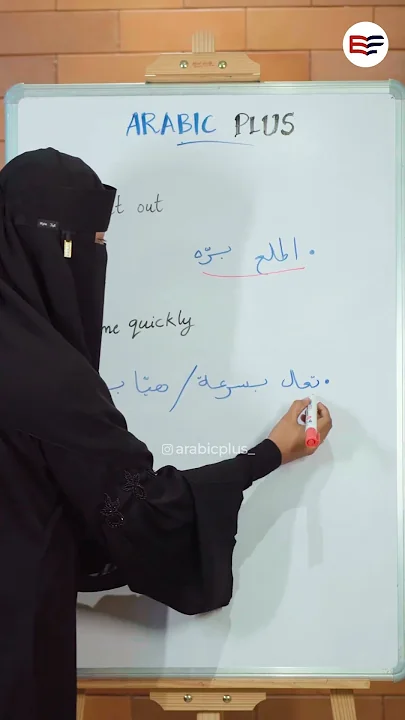 ARABIC PLUS
out
اطلع برّه
quickly
تعال بسرعة / هيّا
arabicplus_